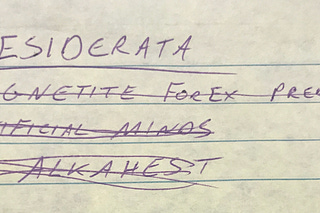 ESIDERATA
GNETITE FOREX PRE
IFICIAL MINDS
ALKAHEST